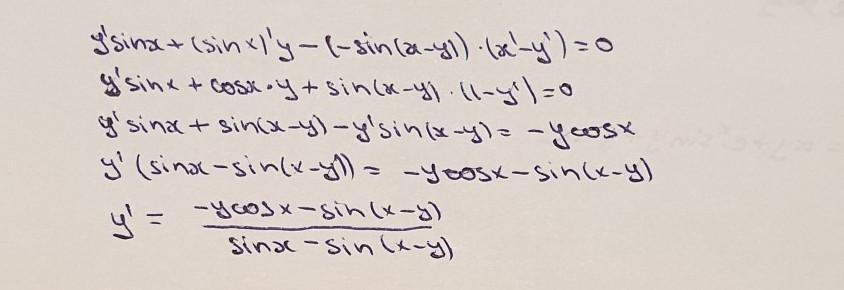 y'sinx+(sinx)'y-(-sin(x-y))·(x'-y')=0
y'sinx+cosx·y+sin(x-y)·(1-y')=0
y'sinx+sin(x-y)-y'sin(x-y)=-ycosx
y'(sinx-sin(x-y))=-ycosx-sin(x-y)
y'=\frac{-ycosx-sin(x-y)}{sinx-sin(x-y)}